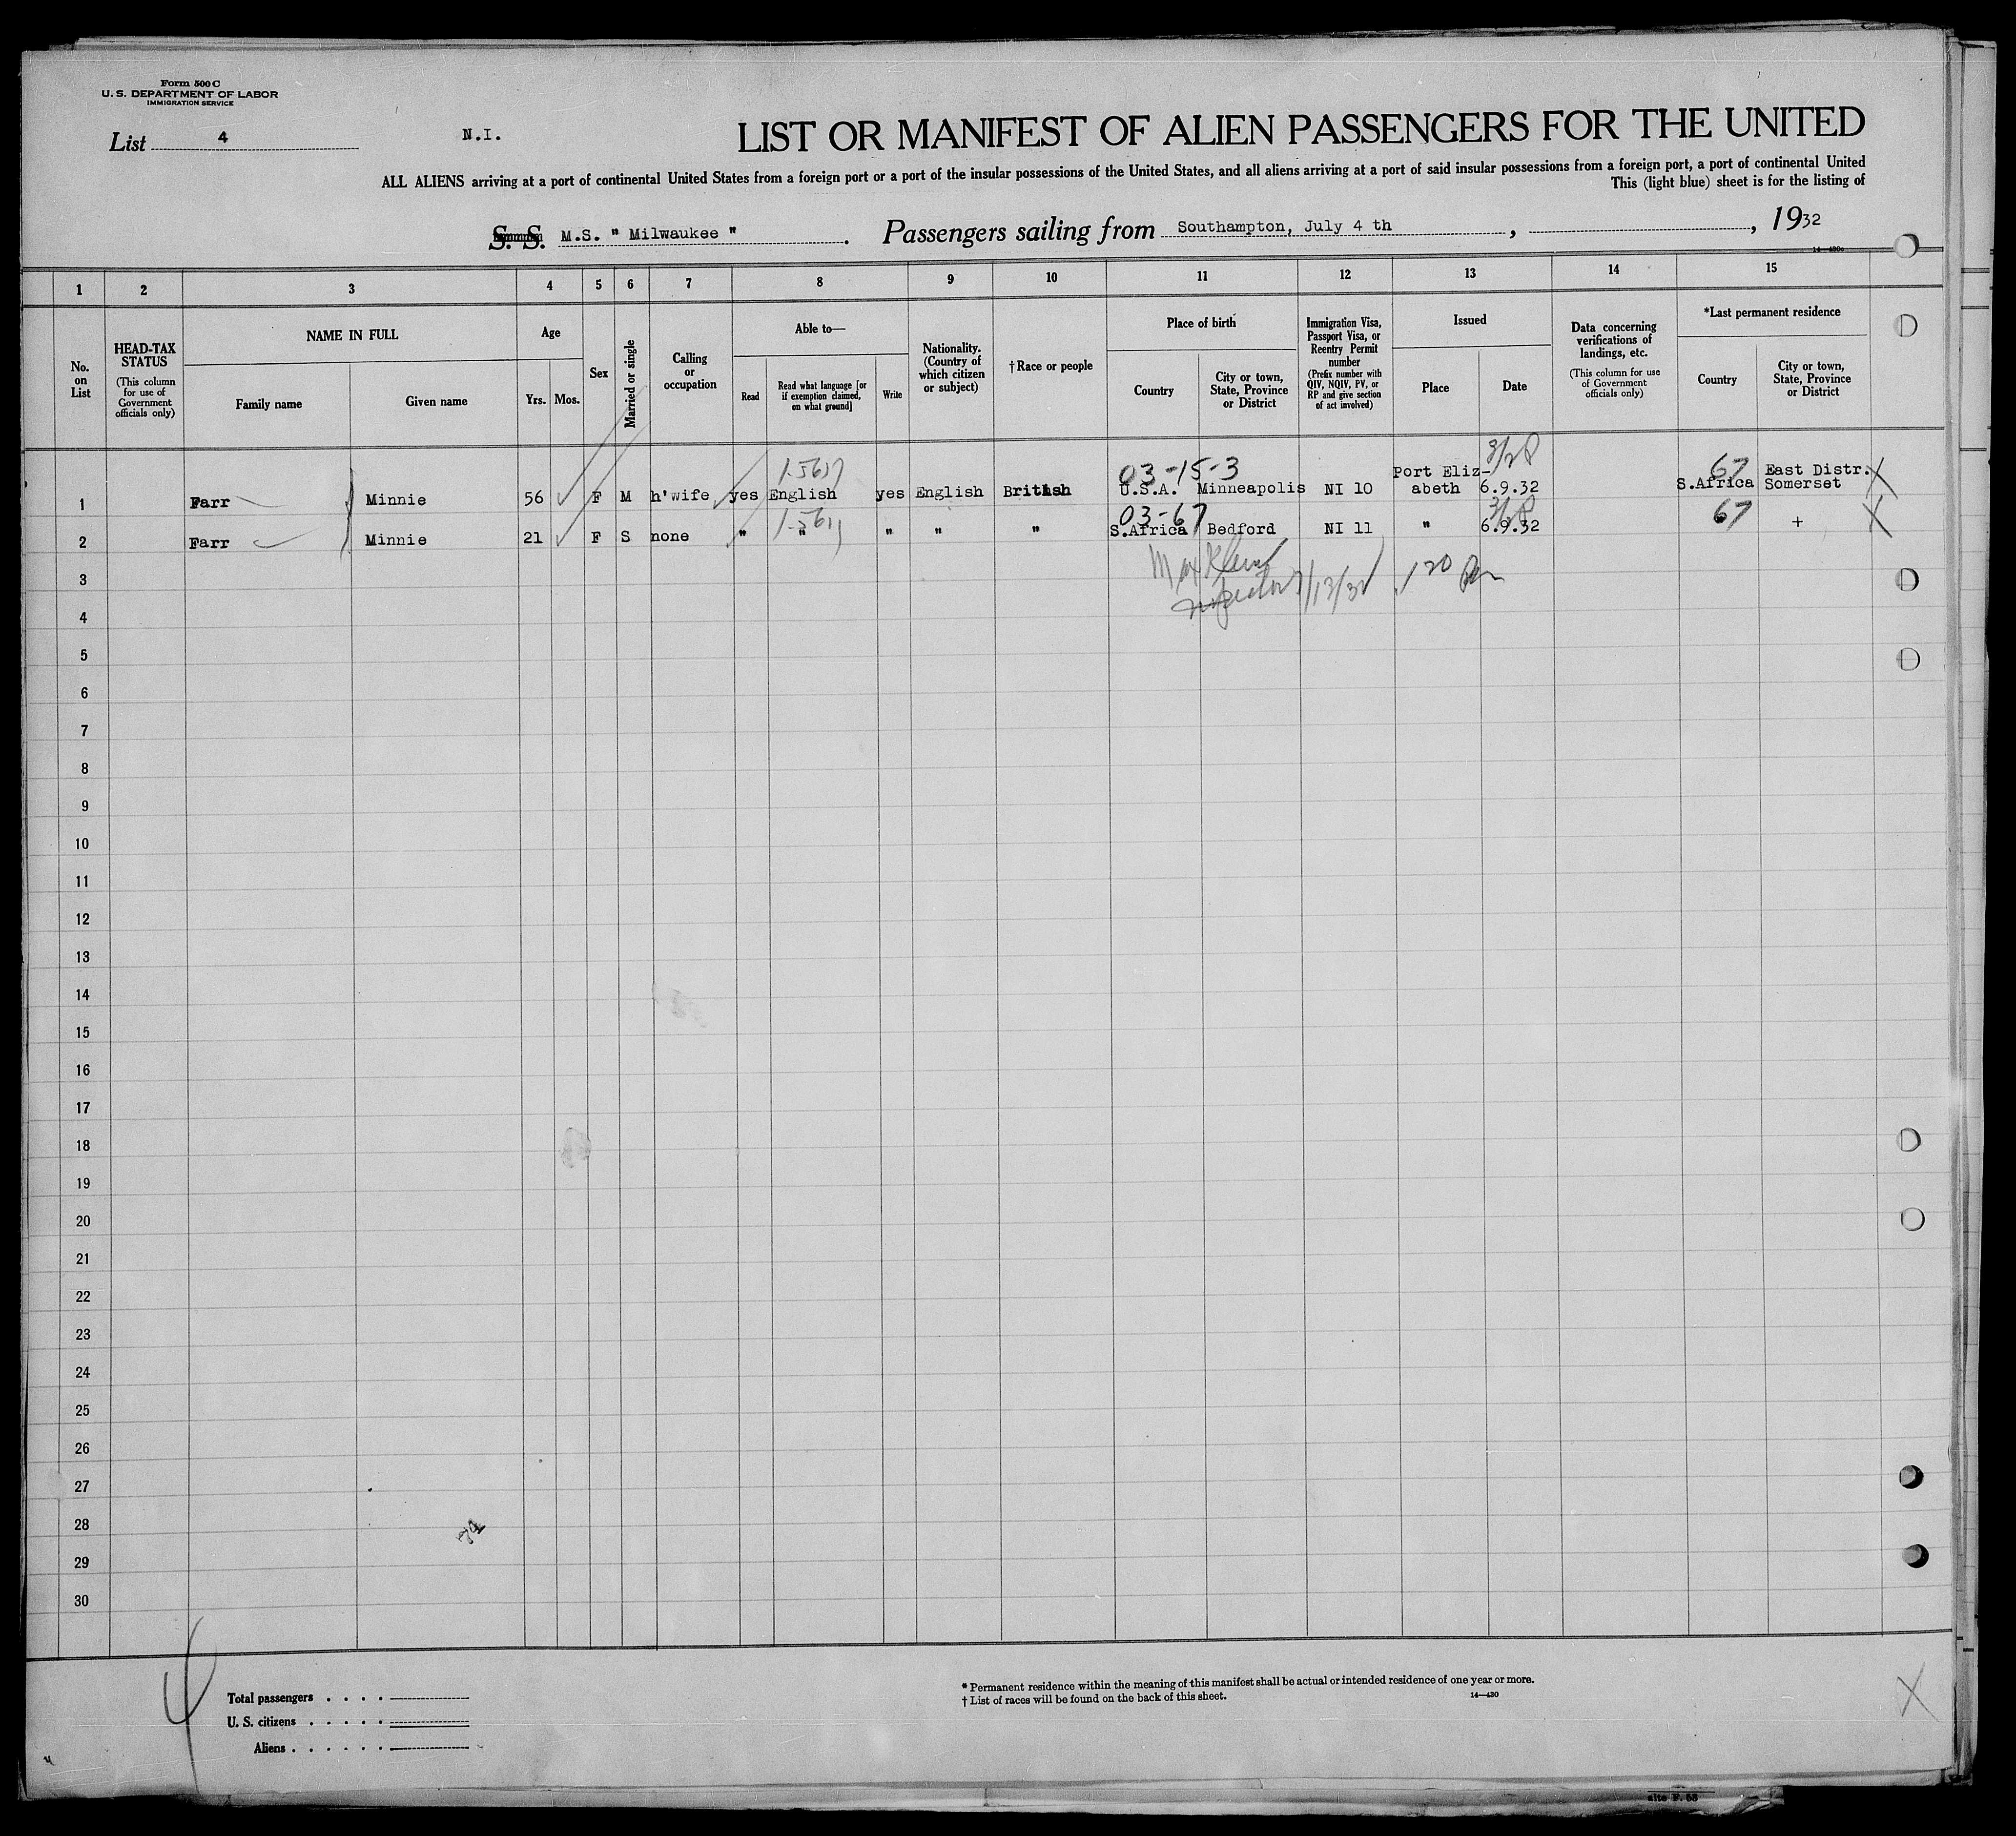 Form 500 C
U. S. DEPARTMENT OF LABOR
IMMIGRATION SERVICE
List 4
N.I.
LIST OR MANIFEST OF ALIEN PASSENGERS FOR THE UNITED
ALL ALIENS arriving at a port of continental United States from a foreign port or a port of the insular possessions of the United States, and all aliens arriving at a port of said insular possessions from a foreign port, a port of continental United
This (light blue) sheet is for the listing of
S. S. M.S. " Milwaukee " . Passengers sailing from Southampton, July 4 th , , 1932
14—430c
1 2 3 4 5 6 7 8 9 10 11 12 13 14 15
No. on List
HEAD-TAX STATUS
(This column for use of Government officials only)
NAME IN FULL
Family name
Given name
Age
Yrs. Mos.
Sex
Married or single
Calling or occupation
Able to—
Read
Read what language [or if exemption claimed, on what ground]
Write
Nationality. (Country of which citizen or subject)
†Race or people
Place of birth
Country
City or town, State, Province or District
Immigration Visa, Passport Visa, or Reentry Permit number
(Prefix number with QIV, NQIV, PV, or RP and give section of act involved)
Issued
Place
Date
Data concerning verifications of landings, etc.
(This column for use of Government officials only)
*Last permanent residence
Country
City or town, State, Province or District
03-15-3 67
1 Farr Minnie 56 F M h'wife yes English yes English British U.S.A. Minneapolis NI 10 Port Eliz-abeth 6.9.32 S.Africa East Distr. Somerset X
03-67 67
2 Farr Minnie 21 F S none " " " " " S.Africa Bedford NI 11 " 6.9.32 + X
Max
Inspector 7/13/32 120 Pm
3
4
5
6
7
8
9
10
11
12
13
14
15
16
17
18
19
20
21
22
23
24
25
26
27
28
29
30
74
Total passengers
U. S. citizens
Aliens
* Permanent residence within the meaning of this manifest shall be actual or intended residence of one year or more.
† List of races will be found on the back of this sheet.
14—430
X